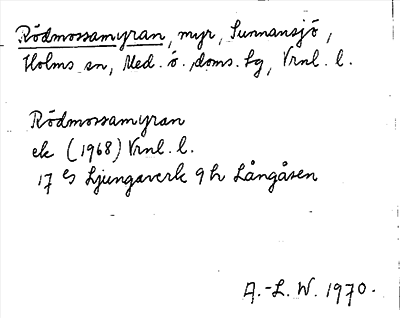 Rödmossamyran, myr, Sunnansjö,
Holms sn, Med. ö. doms. sg, Vrnl. l.
Rödmossamyran
ek (1968) Vrnl. l.
17 G Ljungaverk 9 h Långåsen
A.-L. W. 1970.